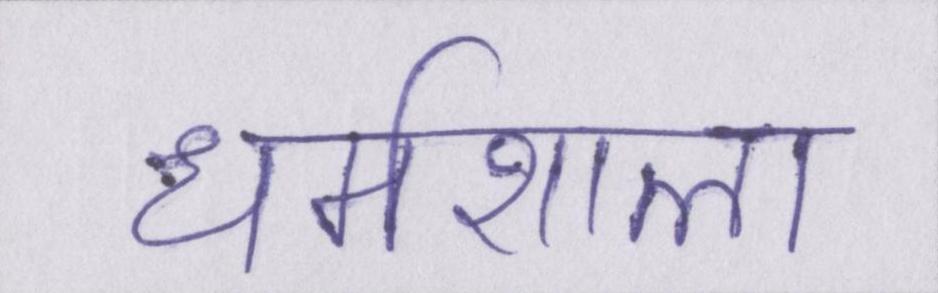 धर्मशाला